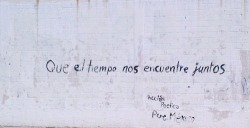 Que el tiempo nos encuentre juntos
Acción
Poética